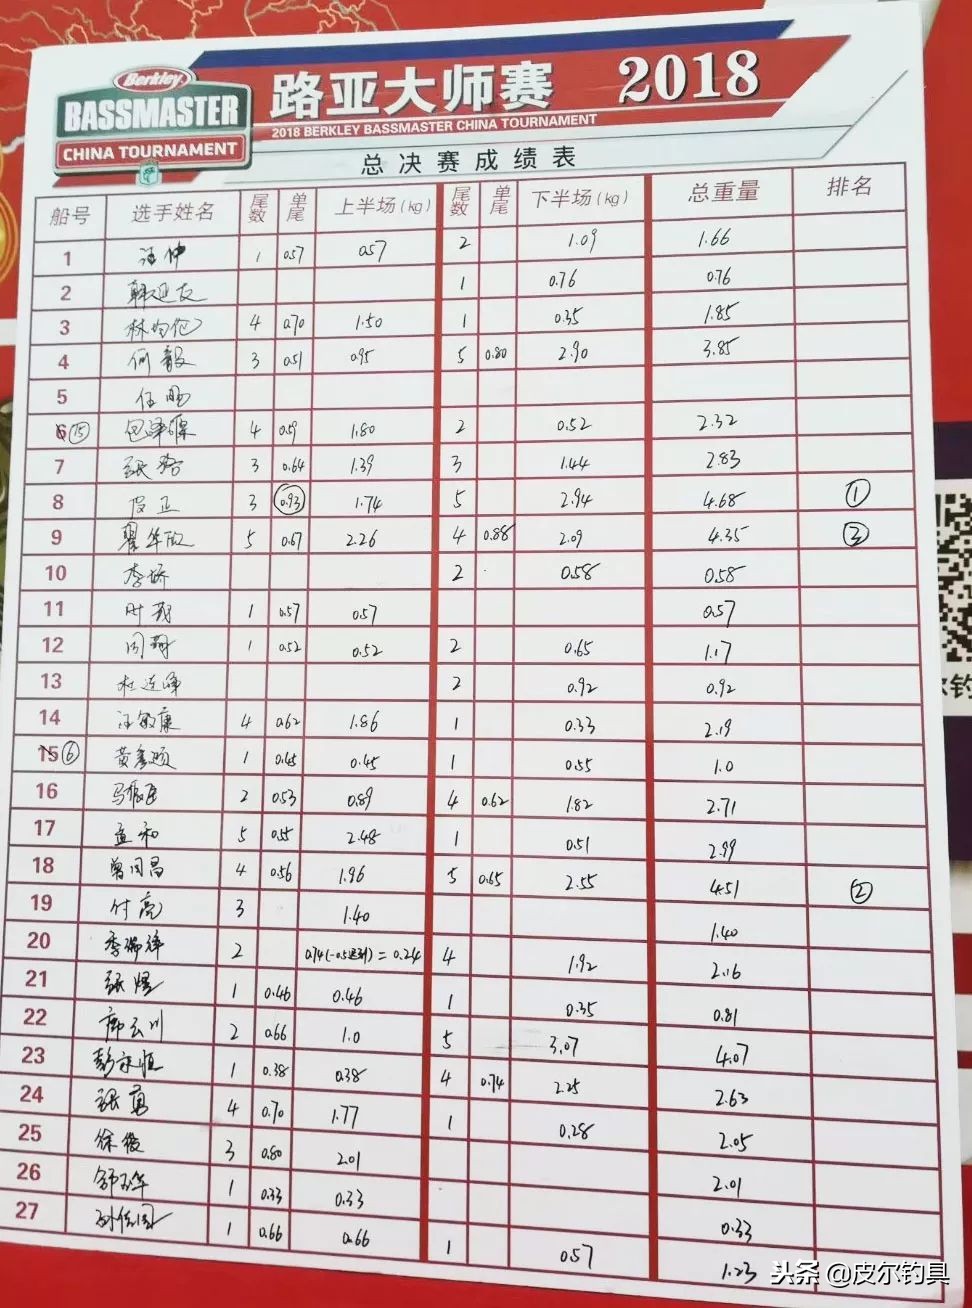 Berkley
BASSMASTER
CHINA TOURNAMENT
路亚大师赛 2018
2018 BERKLEY BASSMASTER CHINA TOURNAMENT
总决赛成绩表
船号 选手姓名 尾数 单尾 上半场(kg) 尾数 单尾 下半场(kg) 总重量 排名
1 汪仲 1 0.57 0.57 2 1.09 1.66
2 韩延友 1 0.76 0.76
3 4 0.70 1.50 1 0.35 1.85
4 何毅 3 0.51 0.95 5 0.80 2.90 3.85
5
6 ⑮ 4 0.59 1.80 2 0.52 2.32
7 张 3 0.64 1.39 3 1.44 2.83
8 皮正 3 0.93 1.74 5 2.94 4.68 ①
9 5 0.67 2.26 4 0.88 2.09 4.35 ③
10 李 2 0.58 0.58
11 叶 1 0.57 0.57 0.57
12 周 1 0.52 0.52 2 0.65 1.17
13 杜连峰 2 0.92 0.92
14 汪敏康 4 0.62 1.86 1 0.33 2.19
15 ⑥ 黄 1 0.45 0.45 1 0.55 1.0
16 马 2 0.53 0.89 4 0.62 1.82 2.71
17 孟和 5 0.55 2.48 1 0.51 2.99
18 曾同昌 4 0.56 1.96 5 0.65 2.55 4.51 ②
19 付亮 3 1.40 1.40
20 2 0.74(-0.5迟到)=0.24 4 1.92 2.16
21 张煜 1 0.46 0.46 1 0.35 0.81
22 2 0.66 1.0 5 3.07 4.07
23 彭永恒 1 0.38 0.38 4 0.74 2.25 2.63
24 张勇 4 0.70 1.77 1 0.28 2.05
25 徐俊 3 0.80 2.01 2.01
26 1 0.33 0.33 0.33
27 1 0.66 0.66 1 0.57 1.23
头条 @皮尔钓具